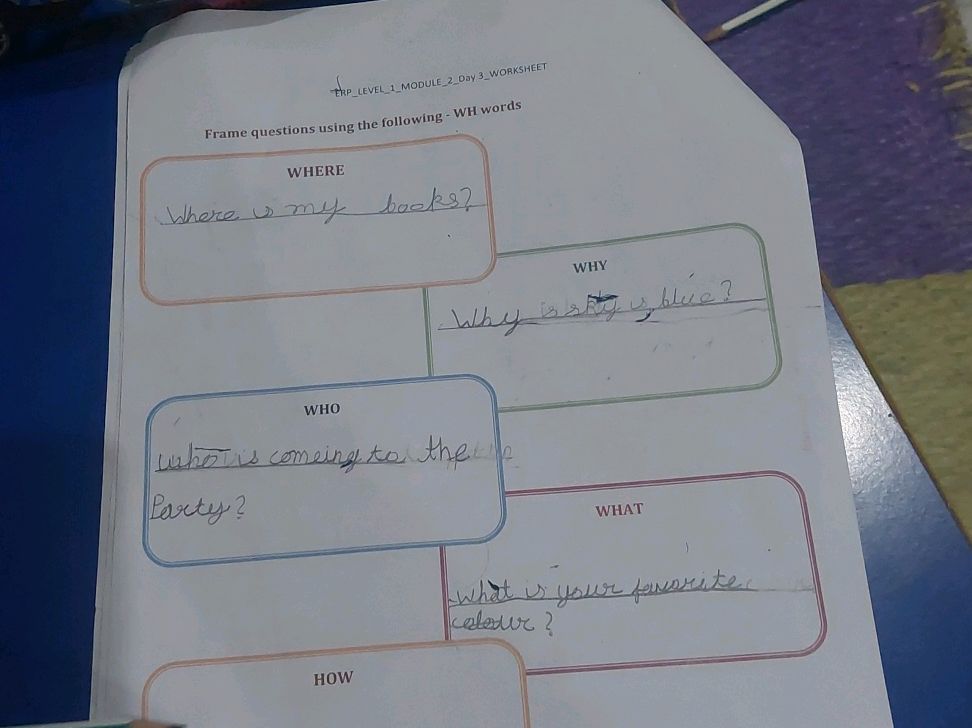 ERP_LEVEL_1_MODULE_2_Day 3_WORKSHEET
Frame questions using the following - WH words
WHERE
Where is my books?
WHY
Why is sky is blue?
WHO
who is comeing to the
Party?
WHAT
what is your favorite
colour?
HOW